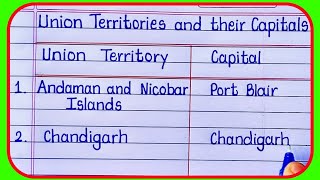 Union Territories and their Capitals
Union Territory Capital
1. Andaman and Nicobar Port Blair
Islands
2. Chandigarh Chandigarh